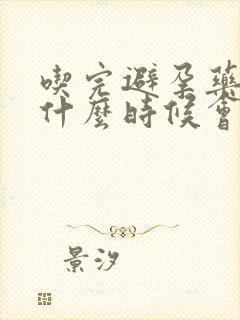 喫完避孕藥
什麼時候會
景汐